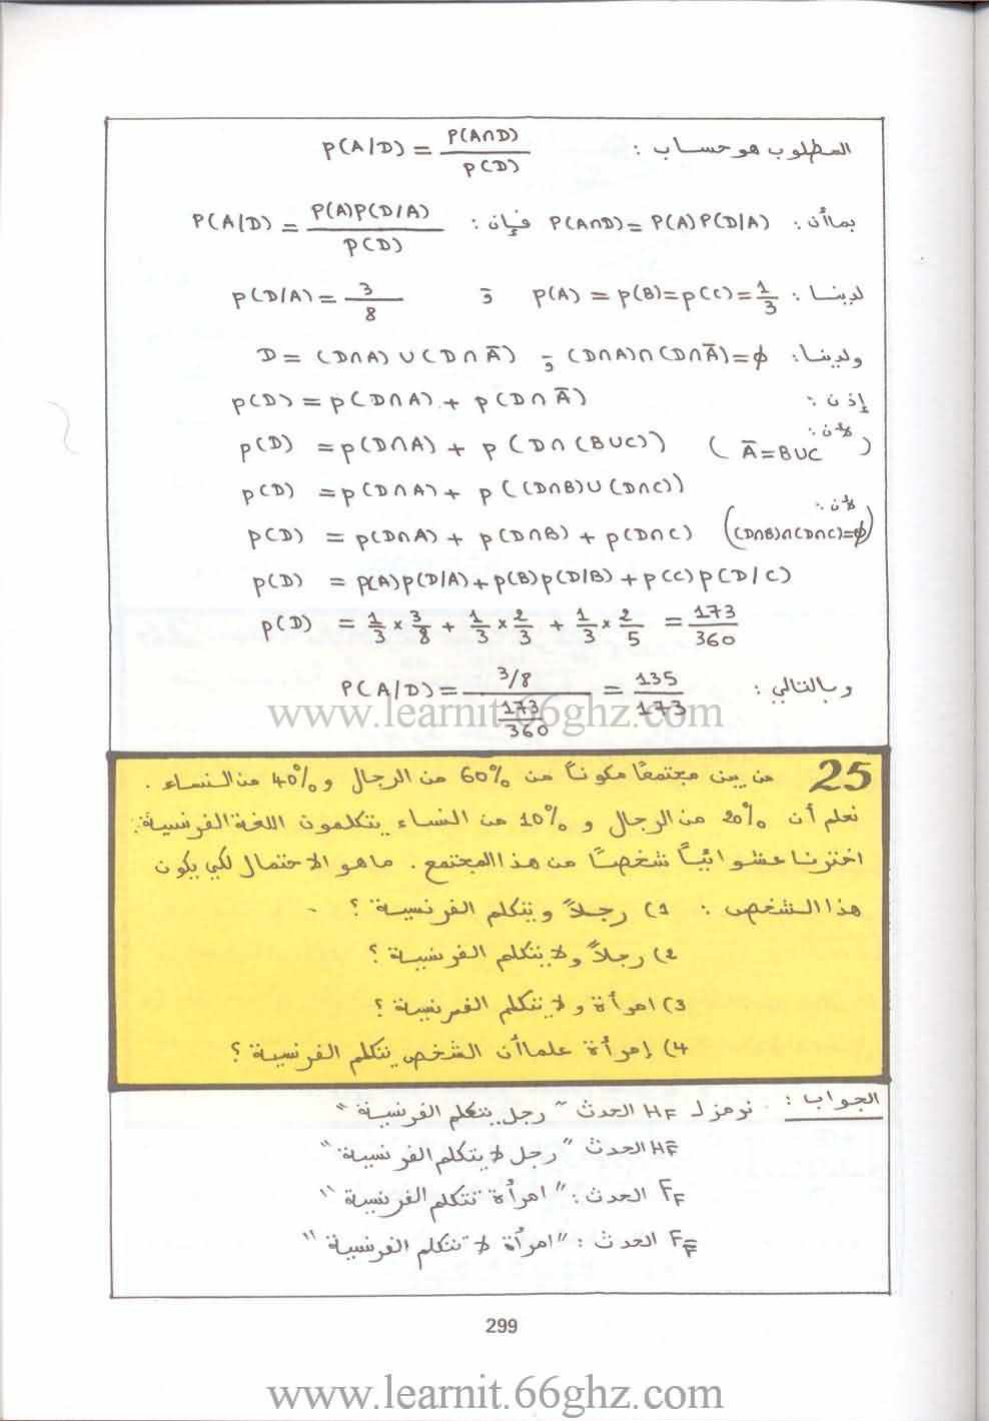 المطلوب هو حساب : P(A/D) = P(A∩D) / P(D)
بما أن : P(A∩D) = P(A) P(D/A) فإن : P(A/D) = P(A)P(D/A) / P(D)
لدينا : P(A) = P(B) = P(C) = 1/3 و P(D/A) = 3/8
ولدينا : D = (D∩A) ∪ (D∩Ā) و (D∩A)∩(D∩Ā)=∅
إذن : P(D) = P(D∩A) + P(D∩Ā)
P(D) = P(D∩A) + P(D∩(B∪C)) (لأن : Ā=B∪C)
P(D) = P(D∩A) + P((D∩B)∪(D∩C))
P(D) = P(D∩A) + P(D∩B) + P(D∩C) (لأن : (D∩B)∩(D∩C)=∅)
P(D) = P(A)P(D/A) + P(B)P(D/B) + P(C)P(D/C)
P(D) = 1/3 × 3/8 + 1/3 × 2/3 + 1/3 × 2/5 = 173/360
وبالتالي : P(A/D) = 3/8 / 173/360 = 135/173
www.learnit.66ghz.com
25 من بين مجتمعا مكونا من 60% من الرجال و 40% من النساء .
نعلم أن 20% من الرجال و 10% من النساء يتكلمون اللغة الفرنسية.
اخترنا عشوائيًا شخصًا من هذا المجتمع . ما هو الاحتمال لكي يكون
هذا الشخص : 1) رجلاً ويتكلم الفرنسية ؟
2) رجلاً ولا يتكلم الفرنسية ؟
3) امرأة ولا تتكلم الفرنسية ؟
4) إمرأة علما أن الشخص يتكلم الفرنسية ؟
الجواب : نرمز لـ HF الحدث " رجل يتكلم الفرنسية "
HF̄ الحدث " رجل لا يتكلم الفرنسية "
FF الحدث : " امرأة تتكلم الفرنسية "
FF̄ الحدث : " امرأة لا تتكلم الفرنسية "
299
www.learnit.66ghz.com